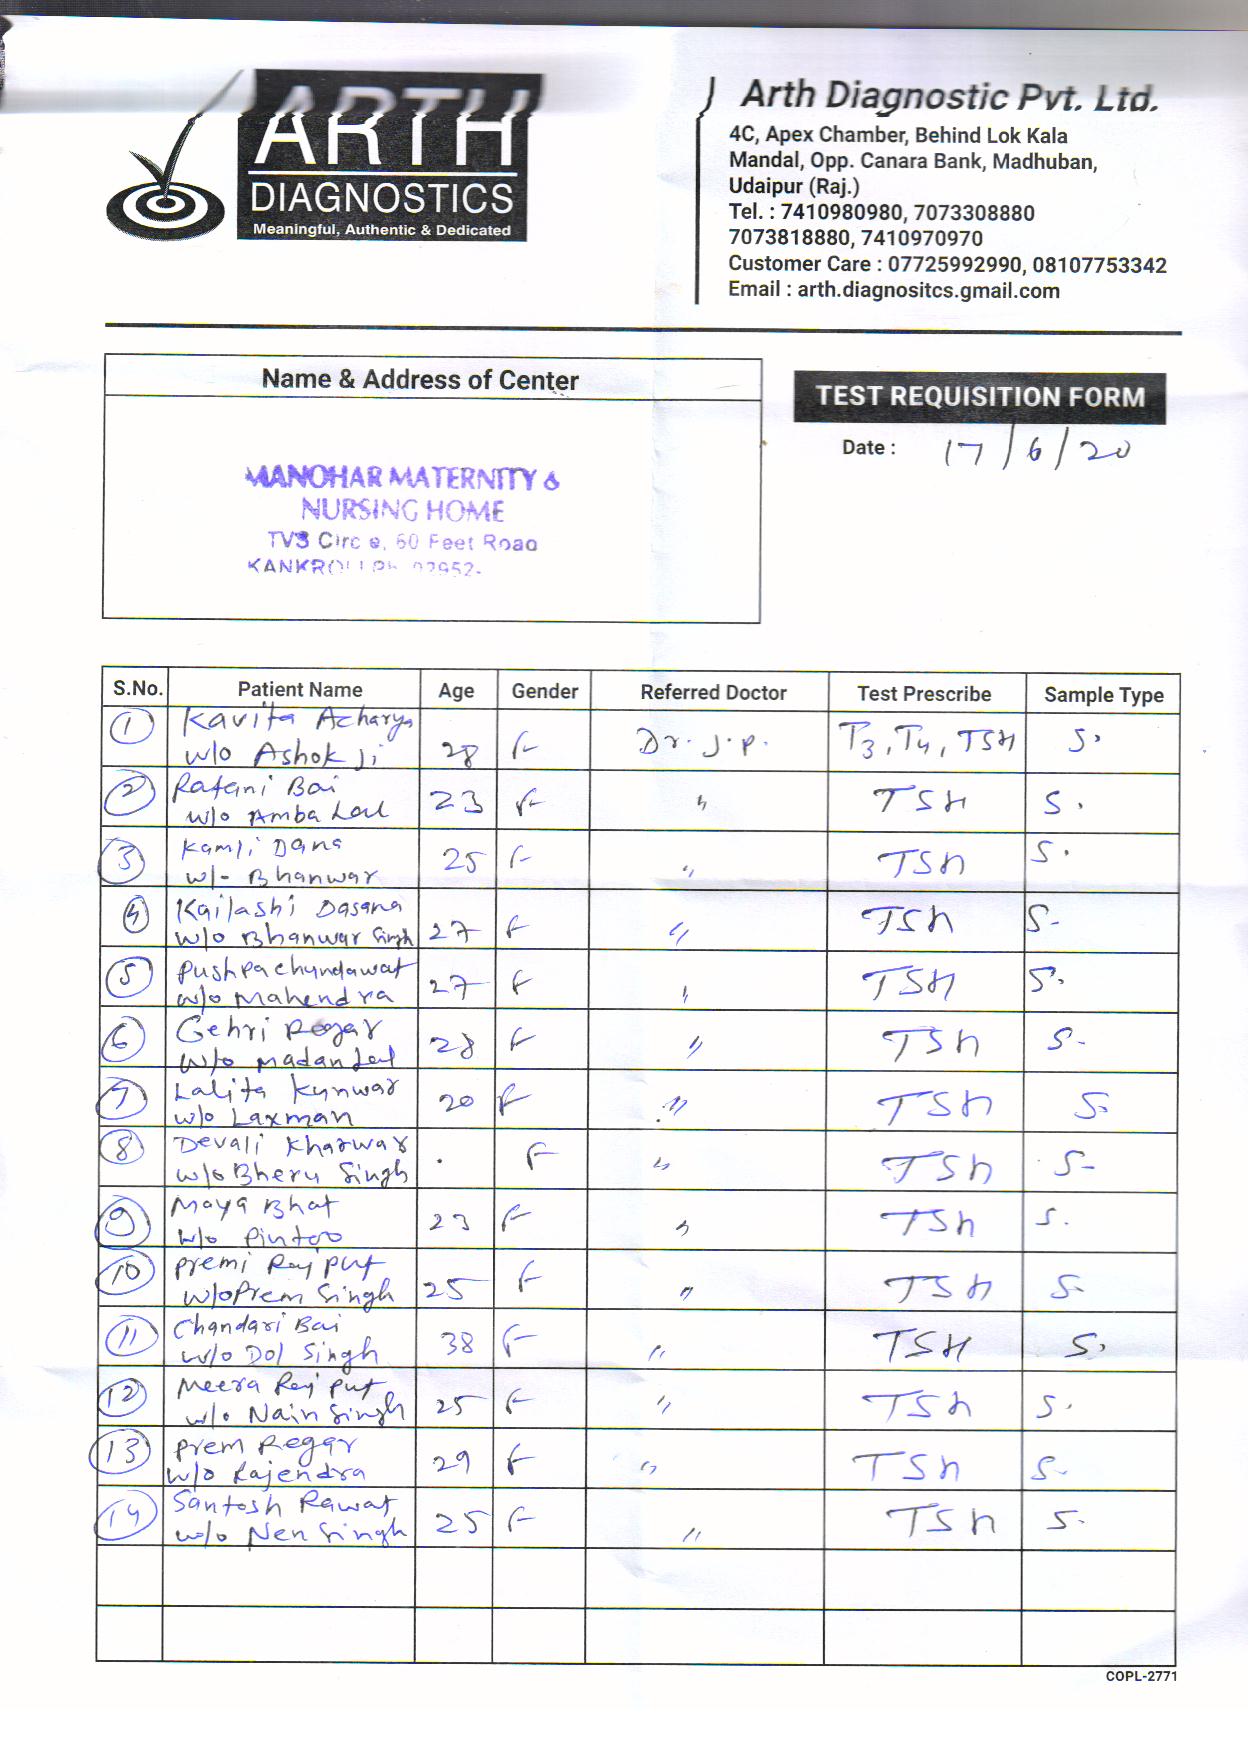 ARTH
DIAGNOSTICS
Meaningful, Authentic & Dedicated
Arth Diagnostic Pvt. Ltd.
4C, Apex Chamber, Behind Lok Kala
Mandal, Opp. Canara Bank, Madhuban,
Udaipur (Raj.)
Tel. : 7410980980, 7073308880
7073818880, 7410970970
Customer Care : 07725992990, 08107753342
Email : arth.diagnositcs.gmail.com
Name & Address of Center
TEST REQUISITION FORM
Date : 17/6/20
MANOHAR MATERNITY &
NURSING HOME
TVS Circle, 60 Feet Road
S.No. Patient Name Age Gender Referred Doctor Test Prescribe Sample Type
1 Kavita Acharya
w/o Ashok Ji 28 F Dr. J.P. T3, T4, TSH S.
2 Ratani Bai
w/o Amba Lal 23 F " TSH S.
3 Kamli Dana
w/- Bhanwar 25 F " TSH S.
4 Kailashi Dasana
w/o Bhanwar Singh 27 F " TSH S-
5 Pushpa Chundawat
w/o Mahendra 27 F " TSH S.
6 Gehri Regar
w/o Madan Lal 28 F " TSH S-
7 Lalita Kunwar
w/o Laxman 20 F " TSH S.
8 Devali Kharwar
w/o Bheru Singh . F " TSH S-
9 Maya Bhat
w/o Pintoo 23 F " TSH S.
10 Premi Rajput
w/o Prem Singh 25 F " TSH S-
11 Chandari Bai
w/o Dol Singh 38 F " TSH S.
12 Meera Rajput
w/o Nain Singh 25 F " TSH S.
13 Prem Regar
w/o Rajendra 29 F " TSH S-
14 Santosh Rawat
w/o Nen Singh 25 F " TSH S-
COPL-2771